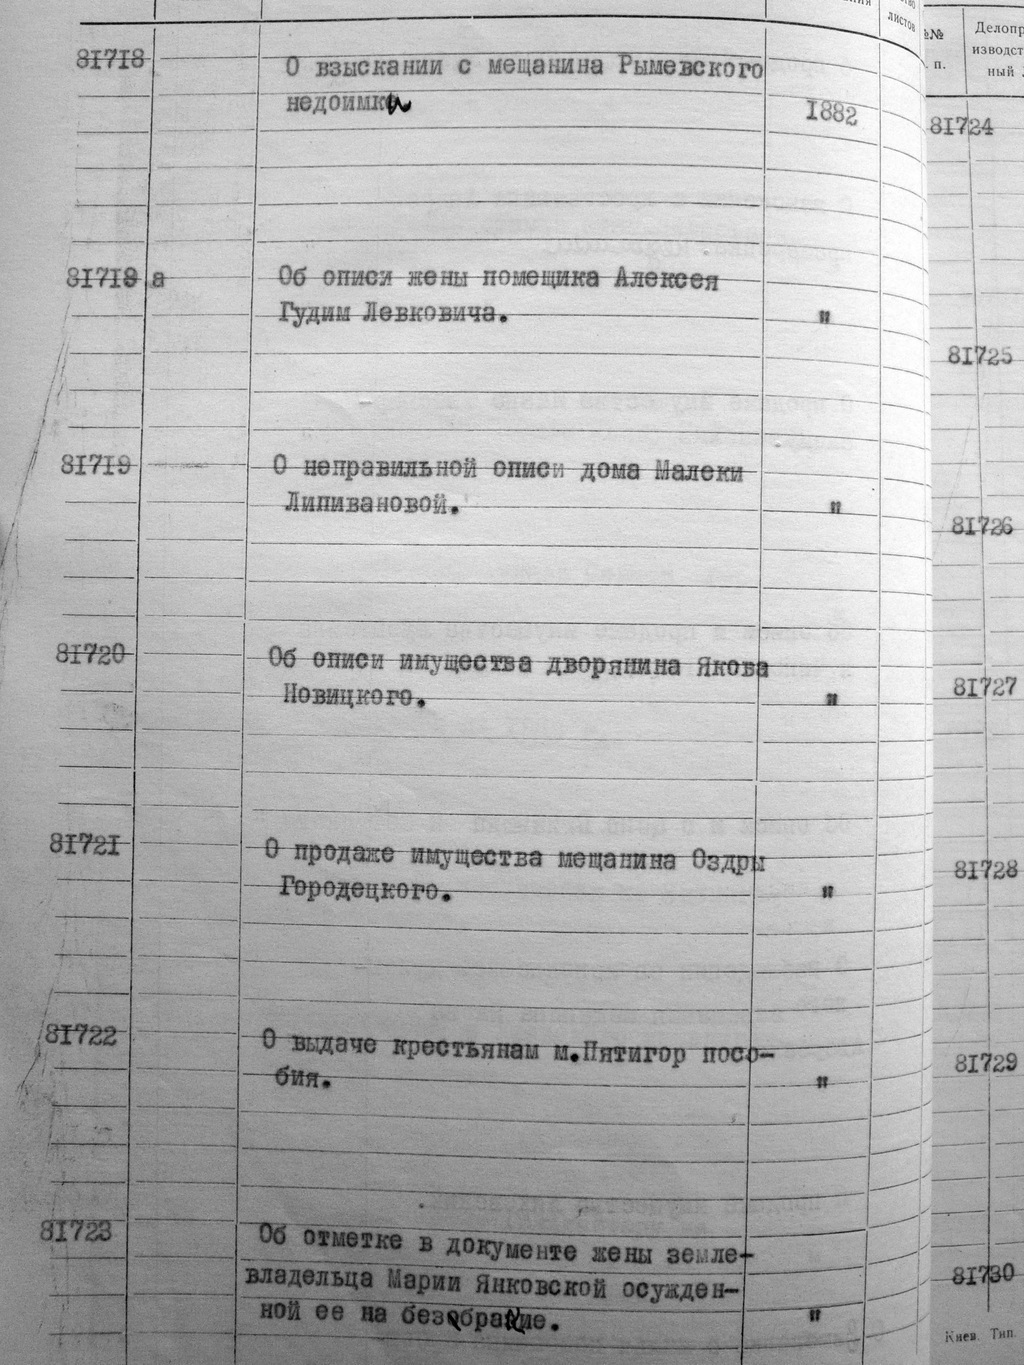 листов
81718 О взыскании с мещанина Рымевского
недоимки
1882
81718 а Об описи жены помещика Алексея
Гудим Левковича. "
81719 О неправильной описи дома Малеки
Липивановой. "
81720 Об описи имущества дворянина Якова
Новицкого. "
81721 О продаже имущества мещанина Оздры
Городецкого. "
81722 О выдаче крестьянам м.Пятигор посо-
бия. "
81723 Об отметке в документе жены земле-
владельца Марии Янковской осужден-
ной ее на безобразие. "
№№ Делопр
п. изводст
ный
81724
81725
81726
81727
81728
81729
81730
Киев. Тип.